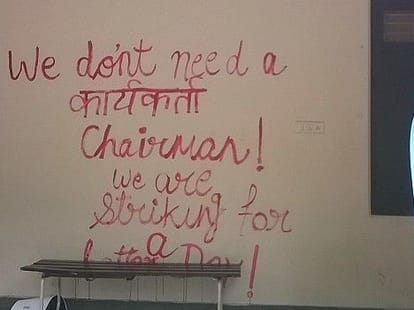 We don't need a
कार्यकर्ता
Chairman!
We are
Striking for
a
Day!